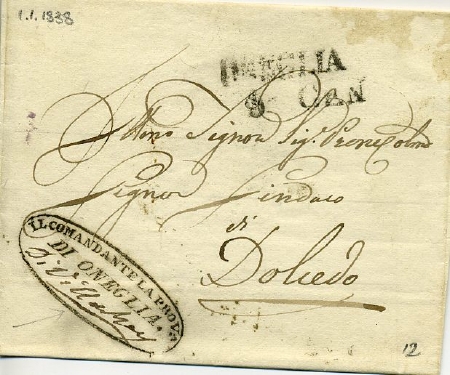 1.1.1838
ONEGLIA
8 GEN
Illmo Signor Sig. Prone Colmo
Signor Sindaco
di
Dolcedo
IL COMANDANTE LA PROV.
DI ONEGLIA.
12